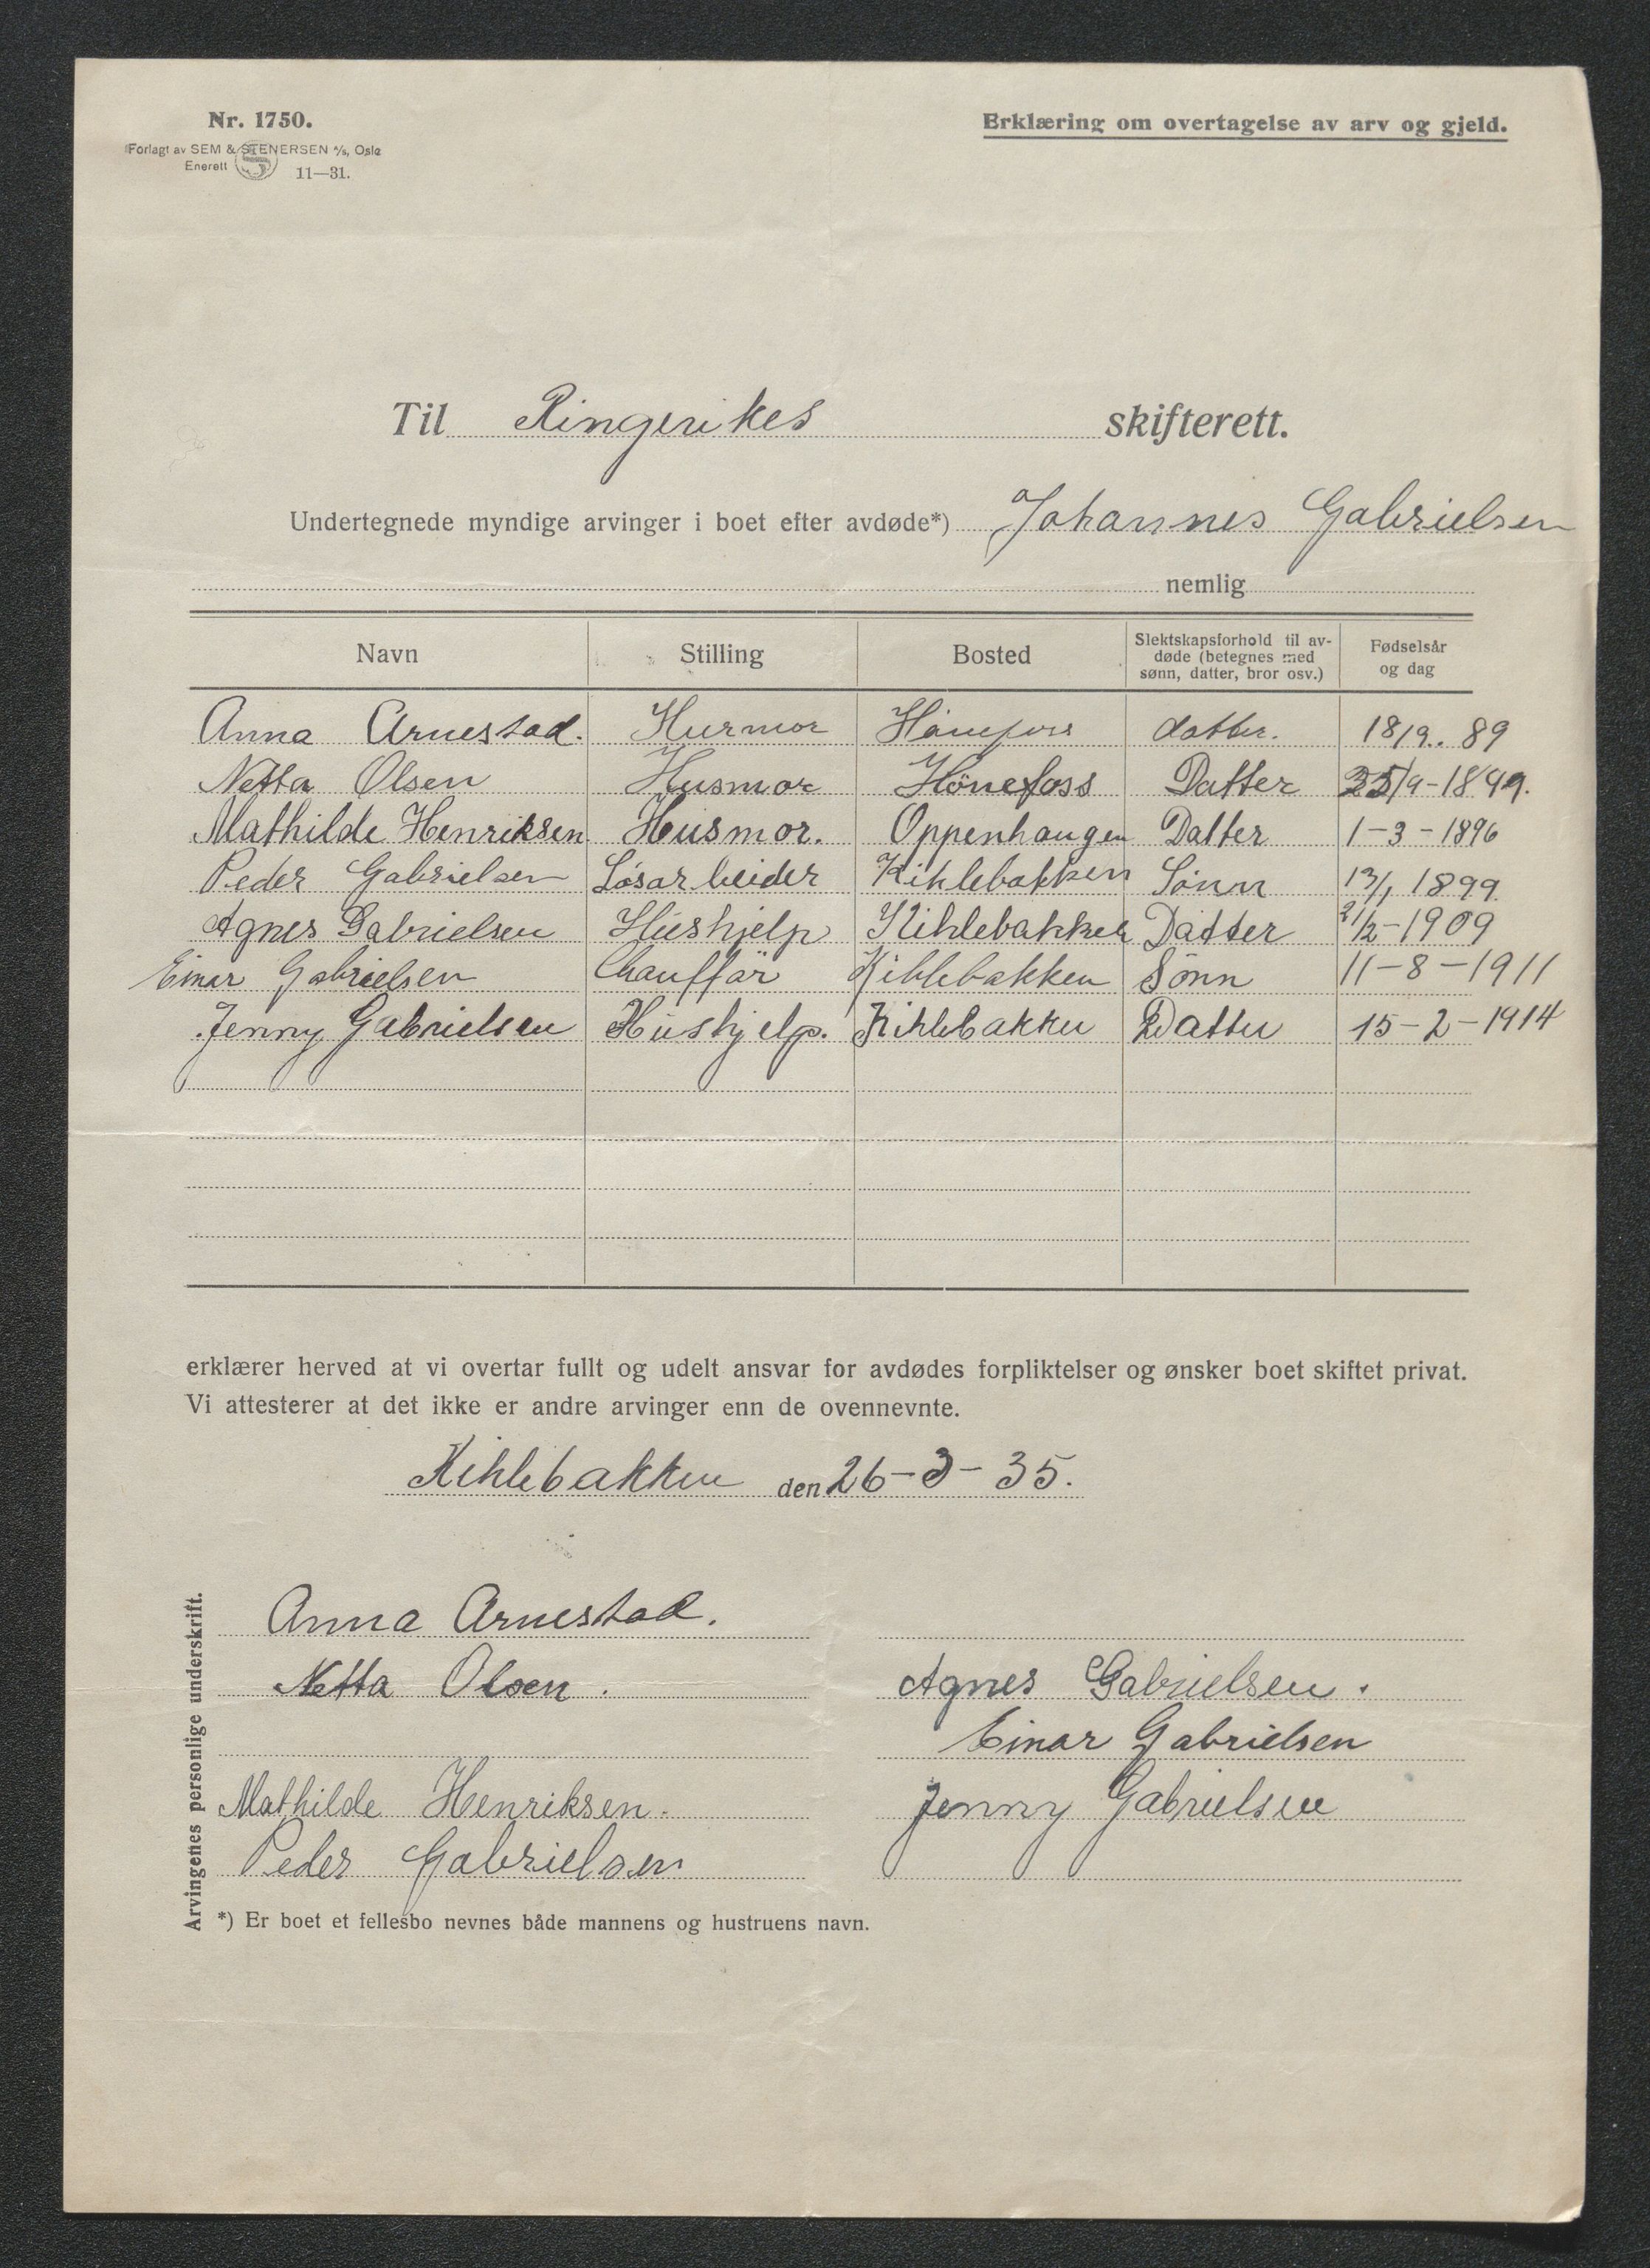 Nr. 1750.
Forlagt av SEM & STENERSEN A/s, Oslo
Enerett S 11—31.
Erklæring om overtagelse av arv og gjeld.
Til Ringerikes skifterett.
Undertegnede myndige arvinger i boet efter avdøde*) Johannes Gabrielsen
nemlig
Navn Stilling Bosted Slektskapsforhold til avdøde (betegnes med sønn, datter, bror osv.) Fødselsår og dag
Anna Arnestad. Husmor Hönefoss datter. 18/9.. 89
Netta Olsen Husmor Hönefoss Datter 25/9-1849.
Mathilde Henriksen Husmor. Oppenhaugen Datter 1-3-1896
Peder Gabrielsen Løsarbeider Kihlebakken Sönn 13/1 1899
Agnes Gabrielsen Hushjelp Kihlebakken Datter 2/2-1909
Einar Gabrielsen Chauffør Kihlebakken Sønn 11-8-1911
Jenny Gabrielsen Hushjelp. Kihlebakken Datter 15-2-1914
erklærer herved at vi overtar fullt og udelt ansvar for avdødes forpliktelser og ønsker boet skiftet privat.
Vi attesterer at det ikke er andre arvinger enn de ovennevnte.
Kihlebakken den 26-3-35.
Arvingenes personlige underskrift.
Anna Arnestad.
Netta Olsen.
Mathilde Henriksen.
Peder Gabrielsen
Agnes Gabrielsen.
Einar Gabrielsen
Jenny Gabrielsen
*) Er boet et fellesbo nevnes både mannens og hustruens navn.